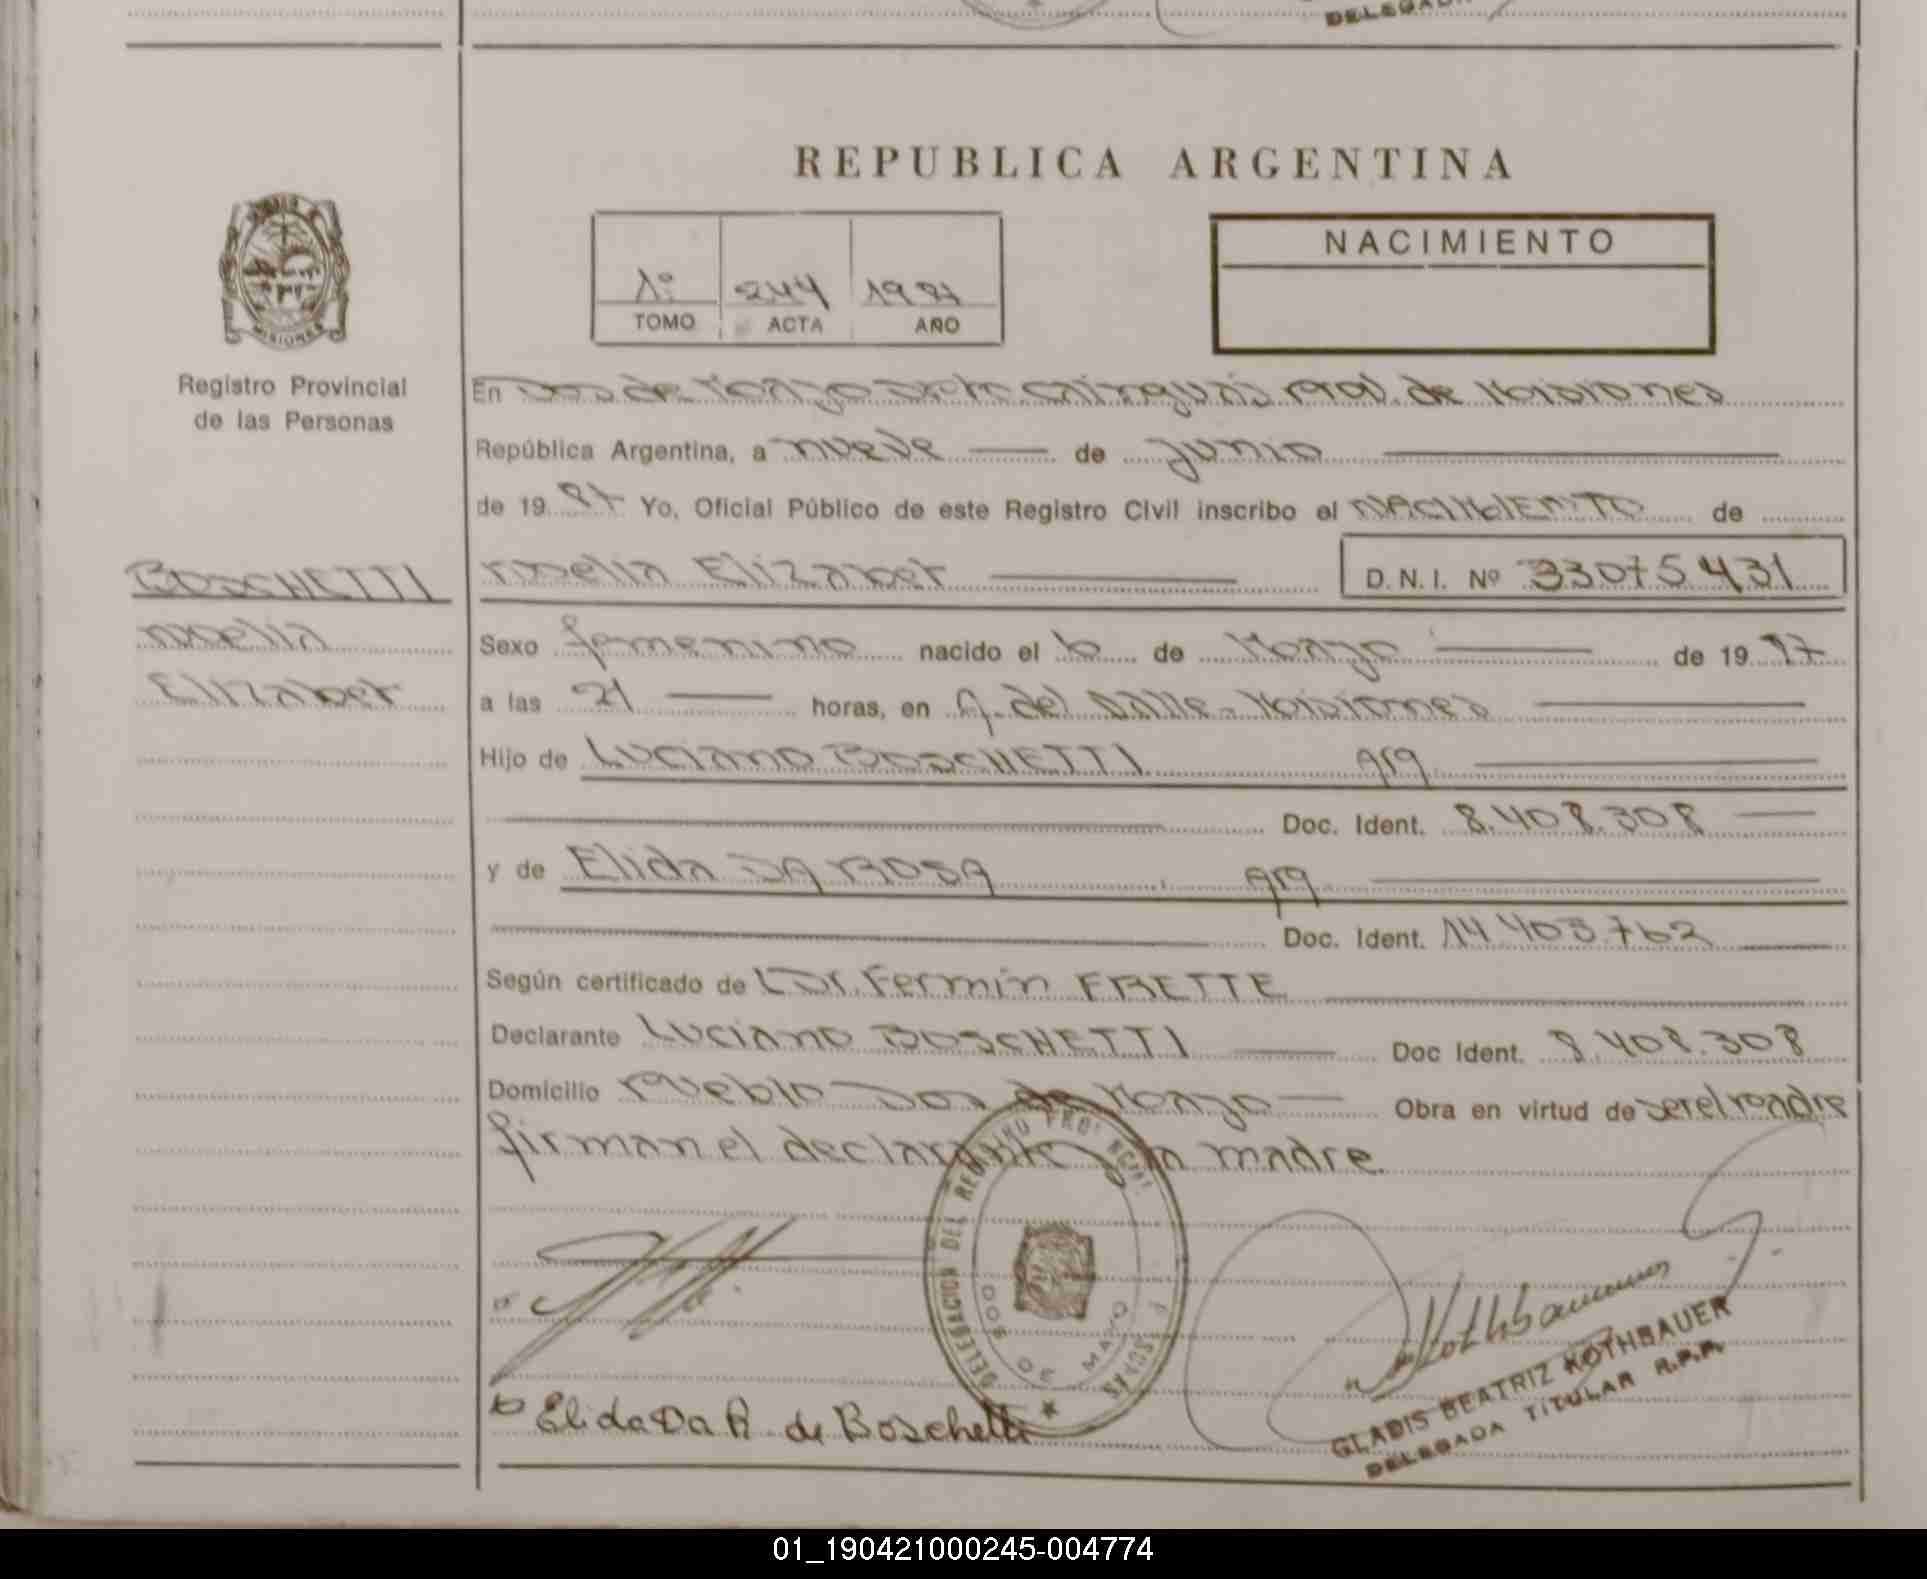 REPUBLICA ARGENTINA
MISIONES
Registro Provincial
de las Personas
1º 244 1987
TOMO ACTA AÑO
NACIMIENTO
En Dos de Mayo Dpto Cainguás Prov. de Misiones
República Argentina, a nueve de Junio
de 1987 Yo, Oficial Público de este Registro Civil inscribo el NACIMIENTO de
BOSCHETTI
Noelia
Elizabet
Noelia Elizabet D.N.I. Nº 33075431
Sexo femenino nacido el 6 de Mayo de 1987
a las 21 horas, en A. del Valle - Misiones
Hijo de Luciano BOSCHETTI arg
Doc. Ident. 8.408.308
y de Elida DA ROSA arg
Doc. Ident. 14.403.762
Según certificado de Dr. Fermín FRETTE
Declarante Luciano BOSCHETTI Doc Ident. 8.408.308
Domicilio Pueblo Dos de Mayo Obra en virtud de ser el padre
firman el declarante y la madre.
DELEGACION DEL REGISTRO PROVINCIAL
DOS DE MAYO
Kothbauer
Elida Da R. de Boschetti
GLADIS BEATRIZ KOTHBAUER
DELEGADA TITULAR R.P.P.
01_190421000245-004774